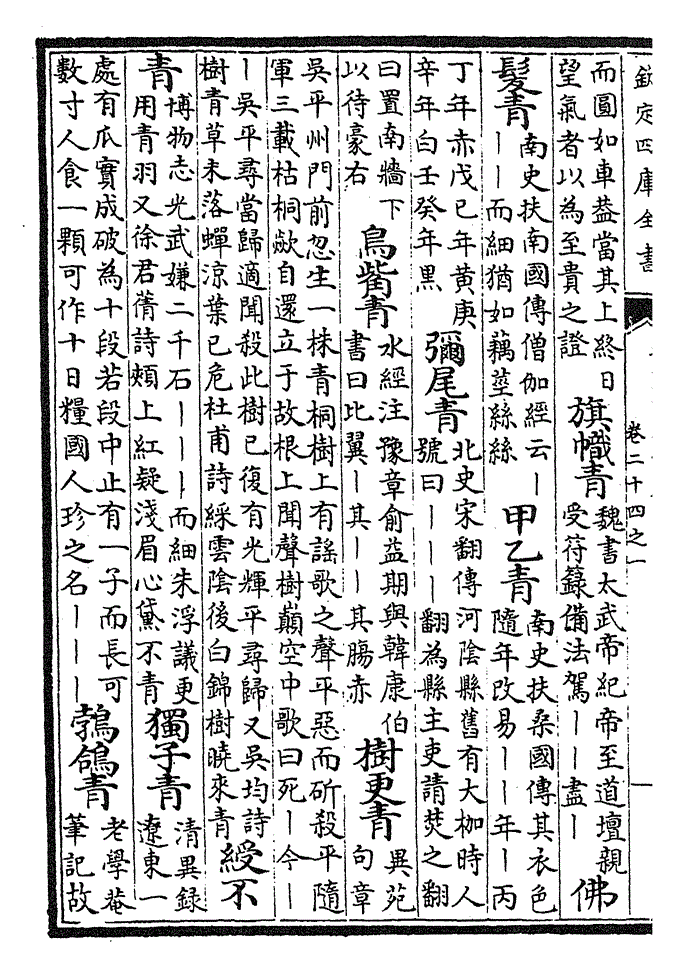 欽定四庫全書
卷二十四之一
而圓如車葢當其上終日
望氣者以為至貴之證
旗幟青
魏書太武帝紀帝至道壇親
受符籙備法駕丨丨盡丨
佛
髮青
南史扶南國傳僧伽經云丨
丨丨而細猶如藕莖絲絲
甲乙青
南史扶桑國傳其衣色
隨年改易丨丨年丨丙
丁年赤戊己年黄庚
辛年白壬癸年黑
彌尾青
北史宋翻傳河陰縣舊有大枷時人
號曰丨丨丨翻為縣主吏請焚之翻
曰置南牆下
以待豪右
鳥觜青
水經注豫章俞益期與韓康伯
書曰比翼丨其丨丨其腸赤
樹更青
異苑
句章
吳平州門前忽生一株青桐樹上有謠歌之聲平惡而斫殺平隨
軍三載枯桐歘自還立于故根上聞聲樹巔空中歌曰死丨今丨
丨吳平尋當歸適聞殺此樹已復有光輝平尋歸又吳均詩
樹青草未落蟬涼葉已危杜甫詩綵雲陰後白錦樹曉來青
綬不
青
博物志光武嫌二千石丨丨丨而細朱浮議更
用青羽又徐君蒨詩頰上紅疑淺眉心黛不青
獨子青
清異録
遼東一
處有瓜實成破為十段若段中止有一子而長可
數寸人食一顆可作十日糧國人珍之名丨丨丨
鵓鴿青
老學菴
筆記故